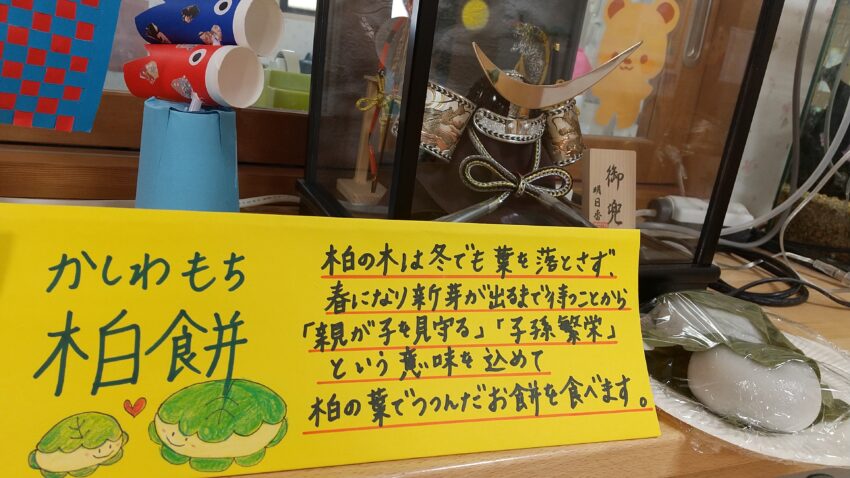 かしわもち
柏餅
柏の木は冬でも葉を落とさず、
春になり新芽が出るまで待つことから
「親が子を見守る」「子孫繁栄」
という意味を込めて
柏の葉でつつんだお餅を食べます。
御兜
明日香